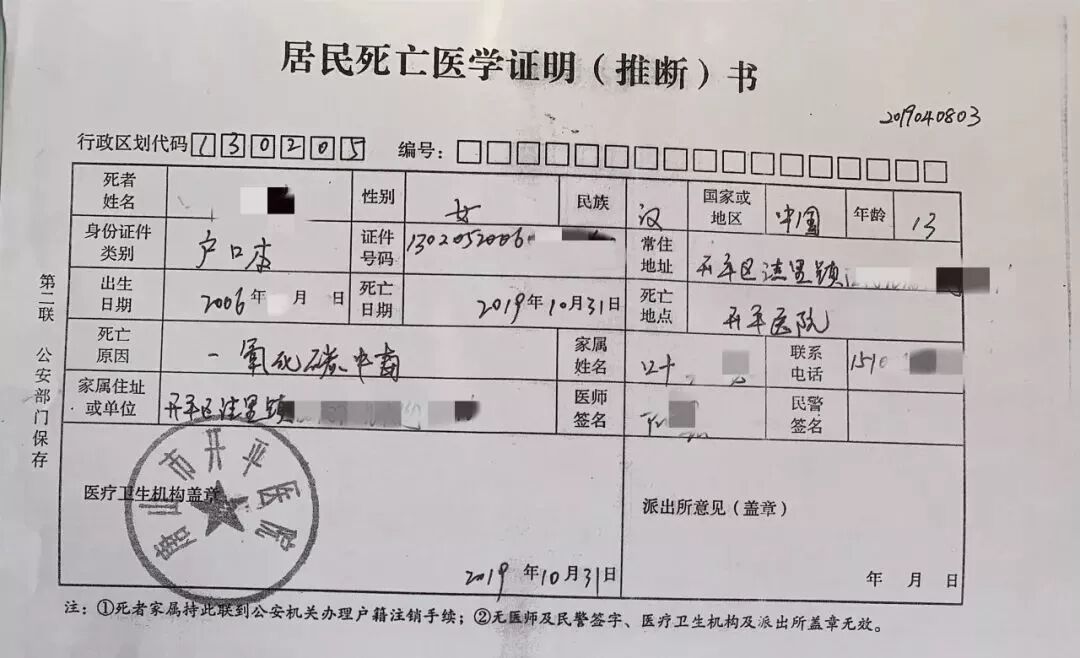 居民死亡医学证明（推断）书
2019040803
行政区划代码 130205 编号：
死者姓名 性别 女 民族 汉 国家或地区 中国 年龄 13
身份证件类别 户口本 证件号码 1302052006 常住地址 开平区洼里镇
出生日期 2006年 月 日 死亡日期 2019年10月31日 死亡地点 开平医院
死亡原因 一氧化碳中毒 家属姓名 联系电话 1510
家属住址或单位 开平区洼里镇 医师签名 民警签名
医疗卫生机构盖章 派出所意见（盖章）
唐山市开平医院
2019年10月31日 年 月 日
注：①死者家属持此联到公安机关办理户籍注销手续；②无医师及民警签字、医疗卫生机构及派出所盖章无效。
第二联 公安部门保存